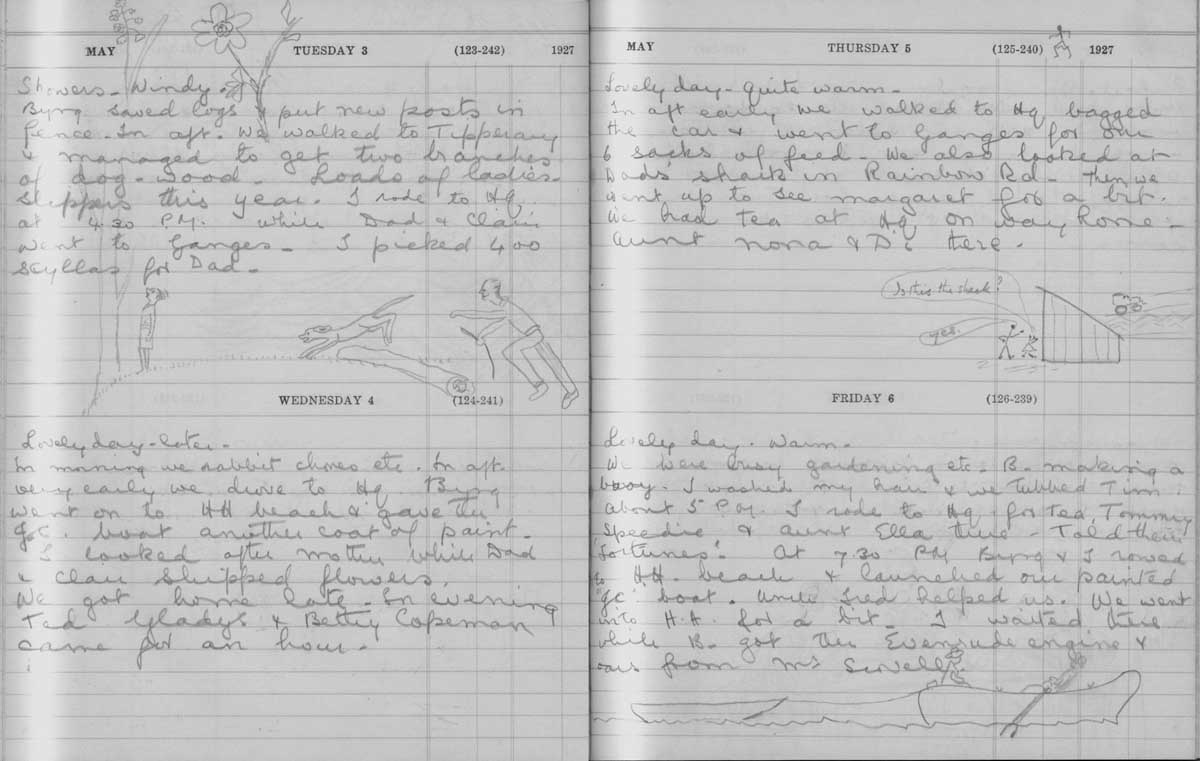 MAY TUESDAY 3 (123-242) 1927
Showers - Windy.
Byng sawed logs & put new posts in
fence. In aft. we walked to Tipperary
& managed to get two branches
of dog-wood. Loads of ladies-
slippers this year. I rode to Hq.
at 4.30 P.M. while Dad & Clair
went to Ganges - I picked 400
scyllas for Dad -
WEDNESDAY 4 (124-241)
Lovely day - later -
In morning we rabbit chores etc. In aft.
very early we drove to Hq. Byng
went on to HH beach & gave the
boat another coat of paint.
I looked after mother while Dad
& Clair shipped flowers.
We got home late. In evening
Ted Gladys & Betty Copeman
came for an hour.
MAY THURSDAY 5 (125-240) 1927
Lovely day - quite warm -
In aft early we walked to Hq bagged
the car & went to Ganges for our
6 sacks of feed - We also looked at
Dads shack in Rainbow Rd - then we
went up to see Margaret for a bit.
We had tea at Hq on way home -
Aunt Nona & D. here.
Is this the shack?
yes.
FRIDAY 6 (126-239)
Lovely day. Warm -
We were busy gardening etc - B. making a
buoy. I washed my hair & we tubbed Tim.
About 5 P.M. I rode to Hq. for tea. Tommy
Speedie & Aunt Ella there - Told their
"fortunes". At 7.30 PM Byng & I rowed
to HH. beach & launched our painted
boat. Uncle Fred helped us. We went
into H.H. for a bit - I waited there
while B. got the Evenrude engine &
oars from Mr Sewell.